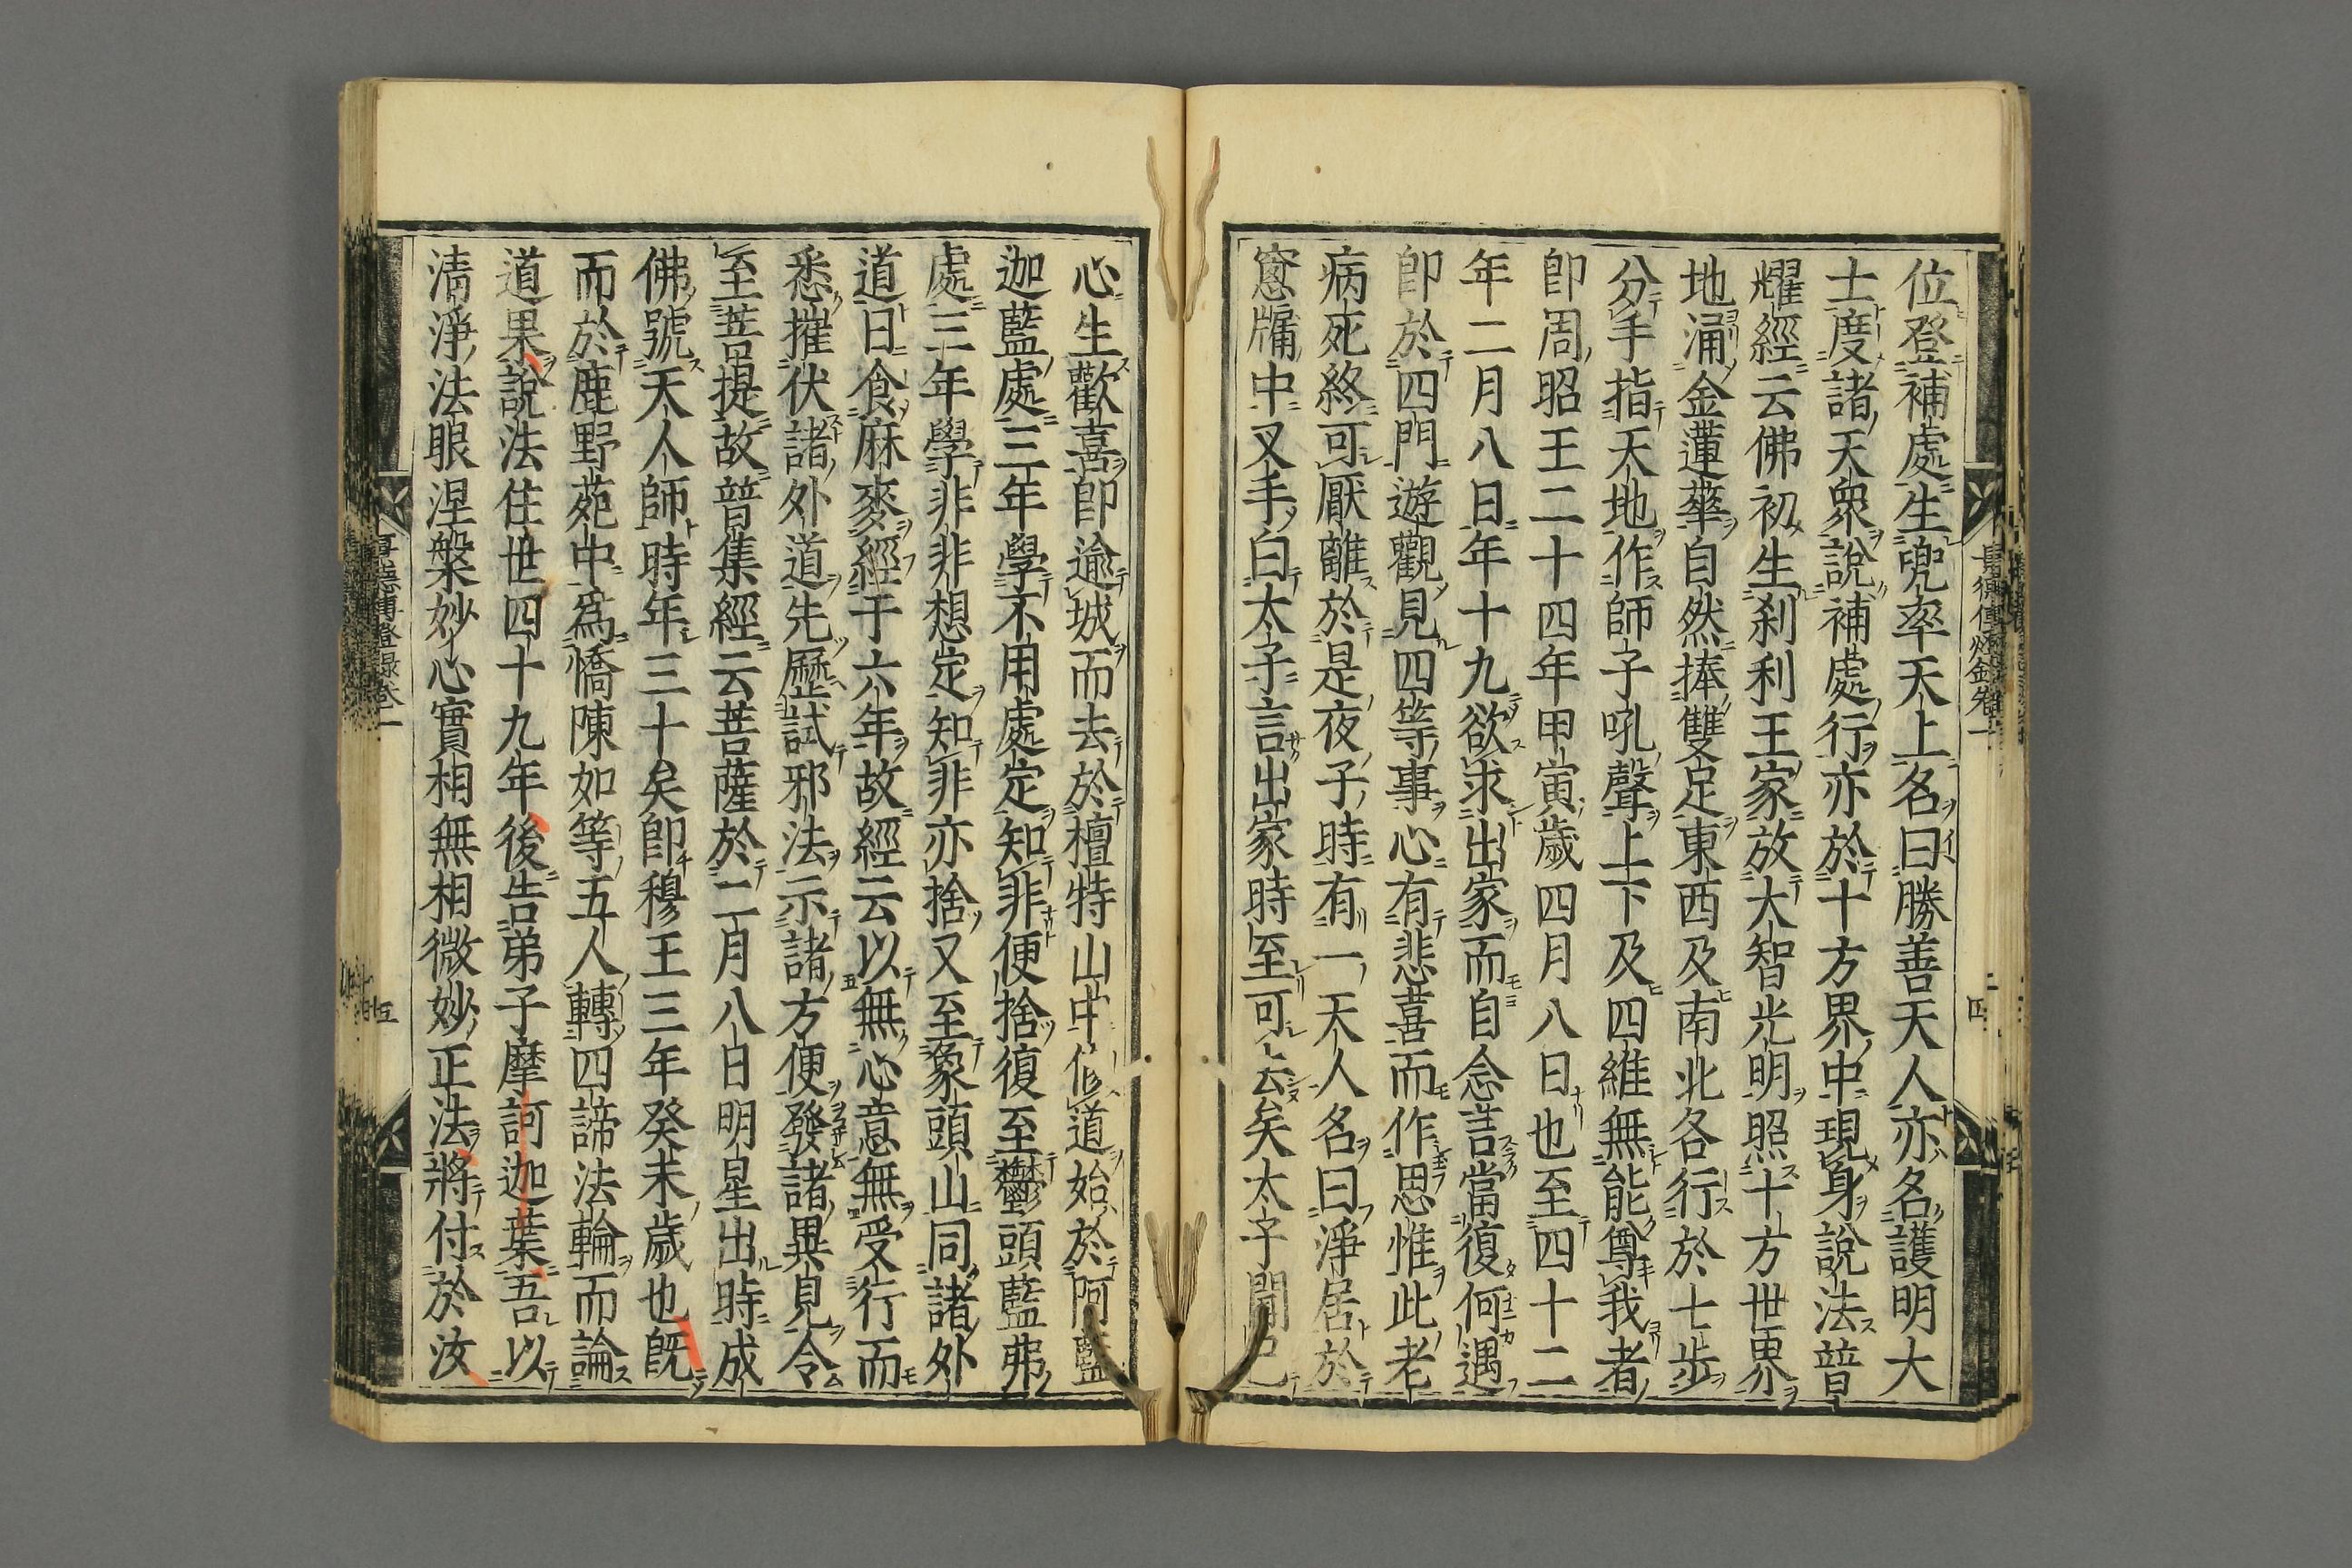 位登補處生兜率天上名曰勝善天人亦名護明大
士度諸天衆說補處行亦於十方界中現身說法普
耀經云佛初生刹利王家放大智光明照十方世界
地涌金蓮華自然捧雙足東西及南北各行於七步
分手指天地作師子吼聲上下及四維無能尊我者
卽周昭王二十四年甲寅歲四月八日也至四十二
年二月八日年十九欲求出家而自念言當復何遇
卽於四門遊觀見四等事心有悲喜而作思惟此老
病死終可厭離於是夜子時有一天人名曰淨居於
窻牖中叉手白太子言出家時至可去矣太子聞已
心生歡喜卽逾城而去於檀特山中修道始於阿藍
迦藍處三年學不用處定知非便捨復至鬱頭藍弗
處三年學非非想定知非亦捨又至象頭山同諸外
道日食麻麥經于六年故經云以無心意無受行而
悉摧伏諸外道先歷試邪法示諸方便發諸異見令
至菩提故普集經云菩薩於二月八日明星出時成
佛號天人師時年三十矣卽穆王三年癸未歲也旣
而於鹿野苑中爲憍陳如等五人轉四諦法輪而論
道果說法住世四十九年後告弟子摩訶迦葉吾以
清淨法眼涅槃妙心實相無相微妙正法將付於汝